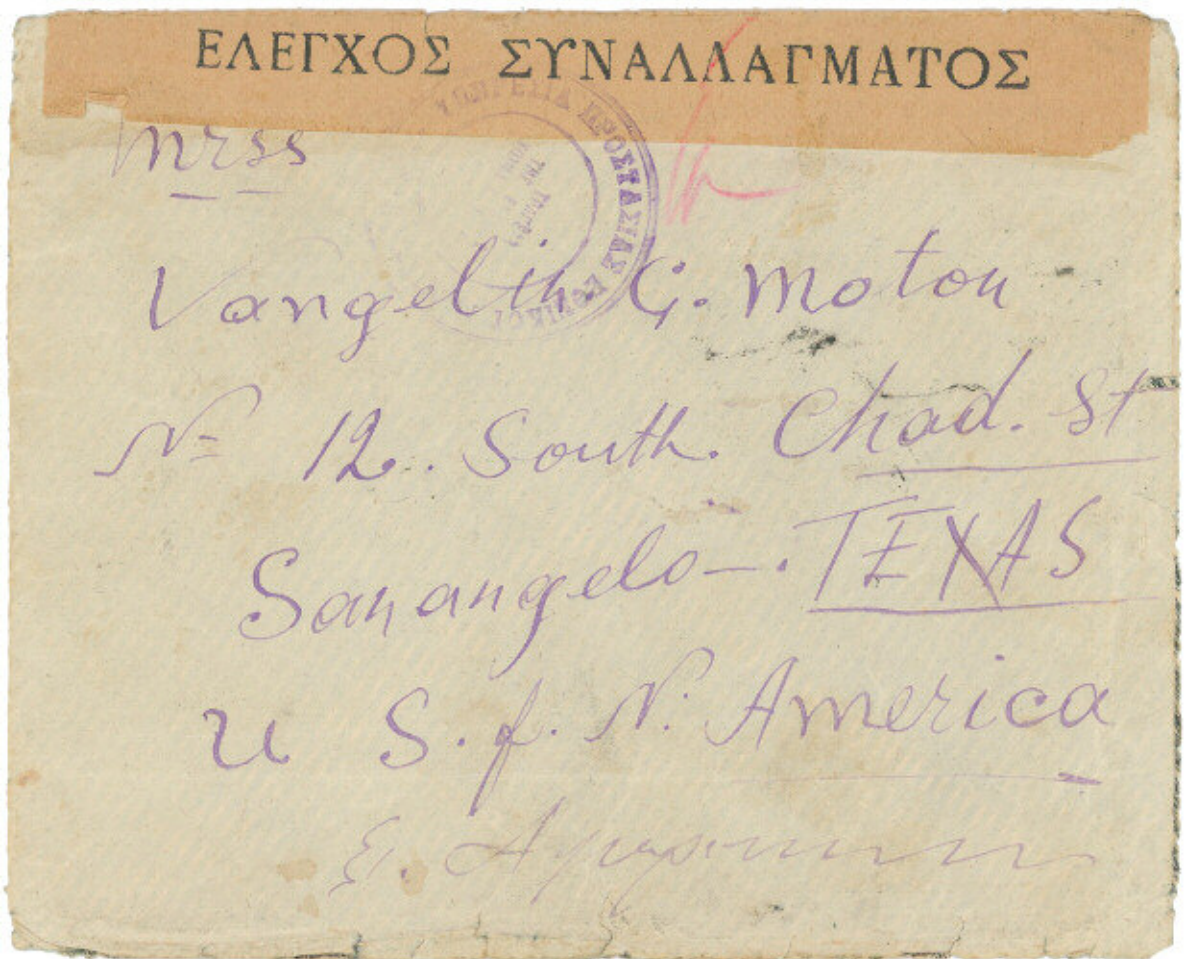 ΕΛΕΓΧΟΣ ΣΥΝΑΛΛΑΓΜΑΤΟΣ
ΠΡΟΣΤΑΣΙΑΣ
mrss
Vangelin. G. Motou
No 12. South. Chad. St
Sanangelo —. TEXAS
U S. f. N. America